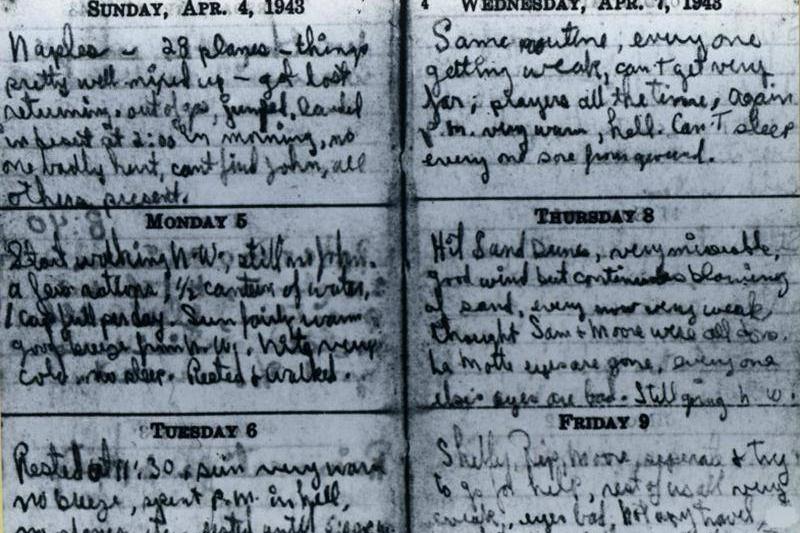 SUNDAY, APR. 4, 1943
Naples – 28 planes – things
pretty well mixed up – got lost
returning, out of gas, jumped, landed
in desert at 2:00 in morning, no
one badly hurt, cant find John, all
others present.
MONDAY 5
Start walking N.W., still no John.
a few rations, 1/2 canteen of water,
1 cap full per day. Sun fairly warm
good breeze from N.W. Nite very
cold, no sleep. Rested & walked.
TUESDAY 6
Rested at 11:30, sun very warm
no breeze, spent P.M. in hell,
no planes, etc. rested until 5:00 P.M.
4 WEDNESDAY, APR. 7, 1943
Same routine, everyone
getting weak, can't get very
far, prayers all the time, again
P.M. very warm, hell. Can't sleep
every one sore from ground.
THURSDAY 8
Hit Sand Dunes, very miserable,
good wind but continuous blowing
of sand, every now very weak
thought Sam & Moore were all done.
La Motte eyes are gone, everyone
else's eyes are bad. Still going N.W.
FRIDAY 9
Shelly, Rip, Moore, separate & try
to go for help, rest of us all very
weak, eyes bad, Not any travel,